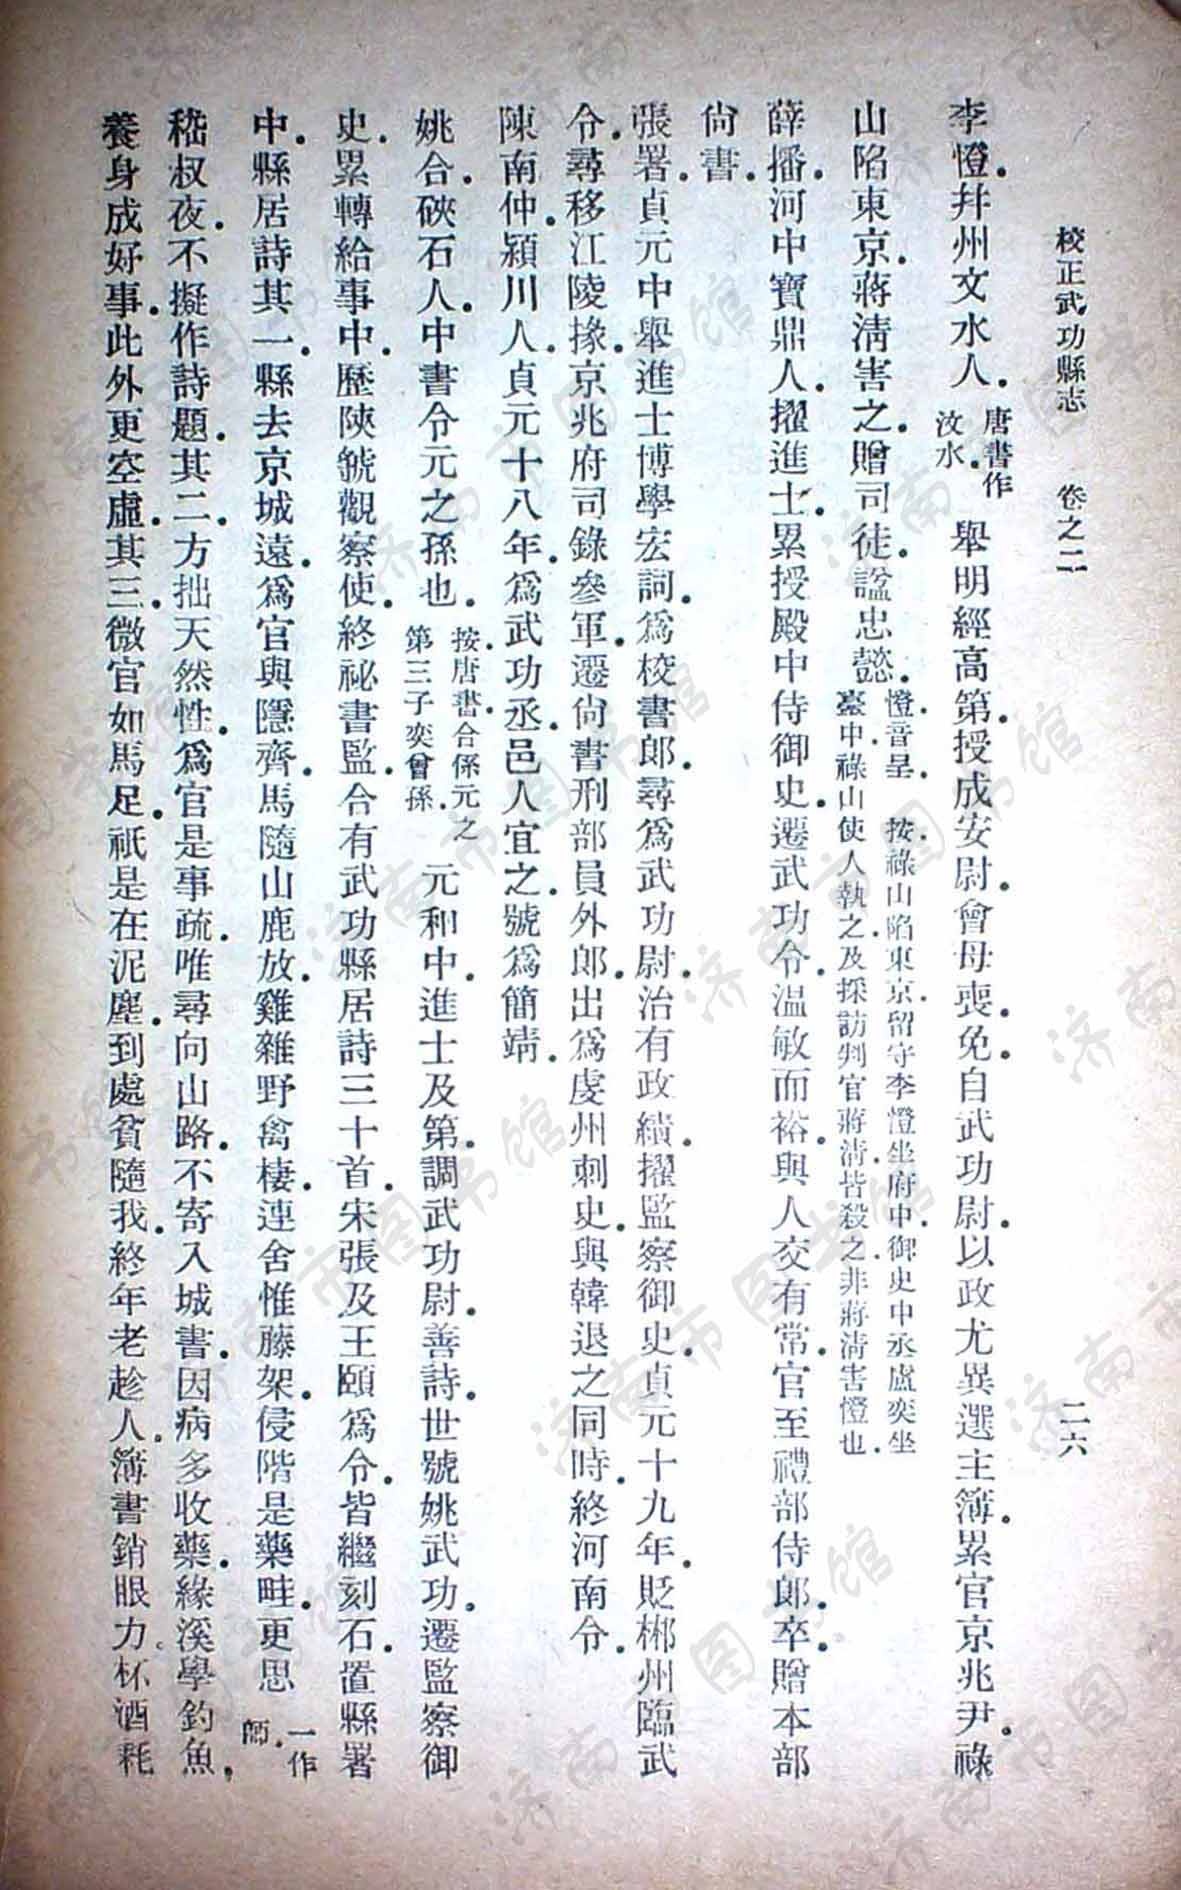 校正武功縣志　卷之二　二六
李憕。幷州文水人。唐書作汶水。舉明經高第。授成安尉。會母喪。免。自武功尉。以政尤異選主簿。累官京兆尹。祿
山陷東京。蔣淸害之。贈司徒。諡忠懿。憕音呈。　按祿山陷東京。留守李憕坐府中。御史中丞盧奕坐臺中。祿山使人執之。及採訪判官蔣淸。皆殺之。非蔣淸害憕也。
薛播。河中寶鼎人。擢進士。累授殿中侍御史。遷武功令。温敏而裕。與人交有常。官至禮部侍郎。卒。贈本部
尙書。
張署。貞元中。舉進士博學宏詞。爲校書郎。尋爲武功尉。治有政績。擢監察御史。貞元十九年。貶郴州臨武
令。尋移江陵掾。京兆府司錄參軍。遷尙書刑部員外郎。出爲虔州刺史。與韓退之同時。終河南令。
陳南仲。潁川人。貞元十八年。爲武功丞。邑人宜之。號爲簡靖。
姚合。硤石人。中書令元之孫也。按唐書。合係元之第三子奕曾孫。元和中。進士及第。調武功尉。善詩。世號姚武功。遷監察御
史。累轉給事中。歷陝虢觀察使。終祕書監。合有武功縣居詩三十首。宋張及王頤爲令。皆繼刻石。置縣署
中。縣居詩其一。縣去京城遠。爲官與隱齊。馬隨山鹿放。雞雜野禽棲。連舍惟藤架。侵階是藥畦。更思一作師。
嵇叔夜。不擬作詩題。其二。方拙天然性。爲官是事疏。唯尋向山路。不寄入城書。因病多收藥。緣溪學釣魚。
養身成好事。此外更空虛。其三。微官如馬足。祇是在泥塵。到處貧隨我。終年老趁人。簿書銷眼力。杯酒耗